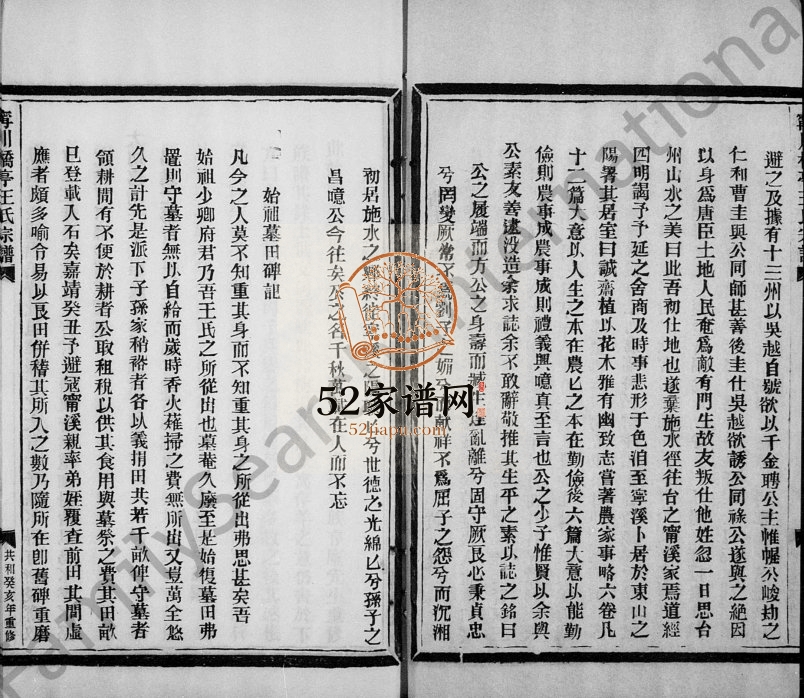 避之及據有十三州以吳越自號欲以千金聘公主帷幄公峻却之
仁和曹圭與公同師甚善後圭仕吳越欲誘公同祿公遂與之絕因
以身爲唐臣土地人民奄爲敵有門生故友叛仕他姓忽一日思台
州山水之美曰此吾初仕地也遂棄施水徑往台之甯溪家焉道經
四明謁予予延之舍商及時事悲形于色泪至寧溪卜居於東山之
陽署其居室曰誠齋植以花木雅有幽致志嘗著農家事略六卷凡
十二篇大意以人生之本在農匕之本在勤儉後六篇大意以能勤
儉則農事成農事成則禮義興噫真至言也公之少子惟賢以余與
公素友善逮没造余求誌余不敢辭敬推其生平之素以誌之銘曰
公之履端而方公之身壽而臧生逢亂離兮固守厥良心秉貞忠
兮罔變厥常不爲
不爲屈子之怨兮而沉湘
初居施水之鄉
兮世德之光綿匕兮孫子之
昌噫公今往矣公之名千秋萬
在人而不忘
始祖墓田碑記
凡今之人莫不知重其身而不知重其身之所從出弗思甚矣吾
始祖少卿府君乃吾王氏之所從出也墓菴久廢至是始復墓田弗
置則守墓者無以自給而歲時香火薙掃之費無所出又豈萬全悠
久之計先是派下子孫家稍裕者各以義捐田共若干畝俾守墓者
領耕間有不便於耕者公取租稅以供其食用與墓祭之費其田畝
已登載入石矣嘉靖癸丑予避寇甯溪親率弟姪覆查前田其間虛
應者頗多喻令易以良田併稽其所入之數乃隨所在卽舊碑重磨
甯川橋亭王氏宗譜
共和癸亥年重修
52家谱网
52jiapu.com
FamilySearch International